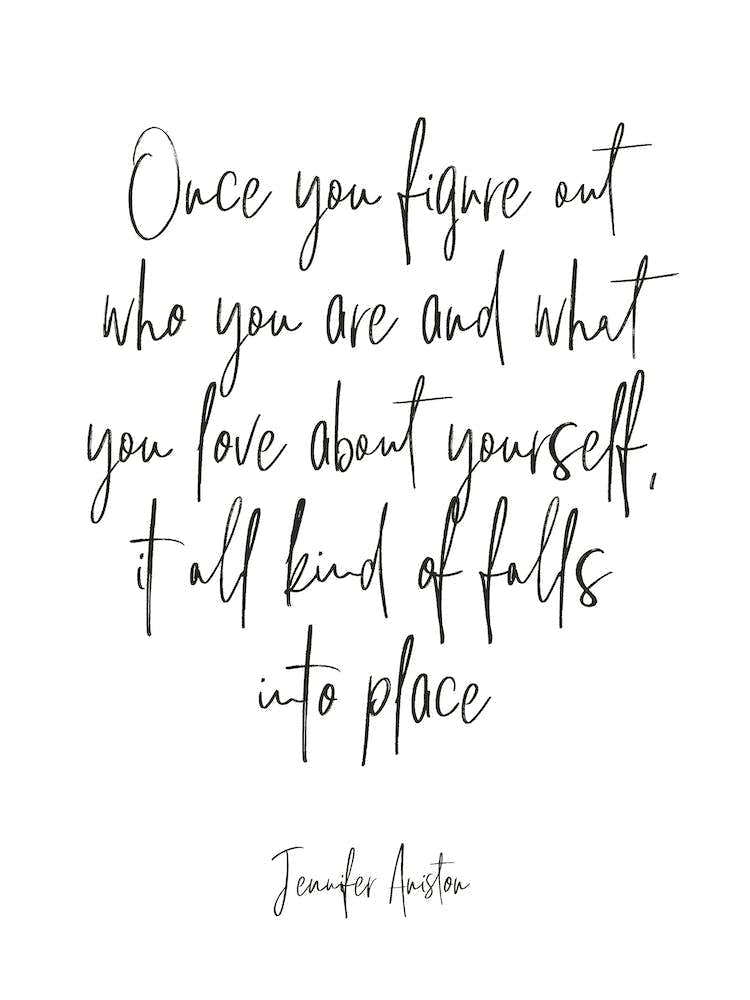 Once you figure out
who you are and what
you love about yourself,
it all kind of falls
into place
Jennifer Aniston